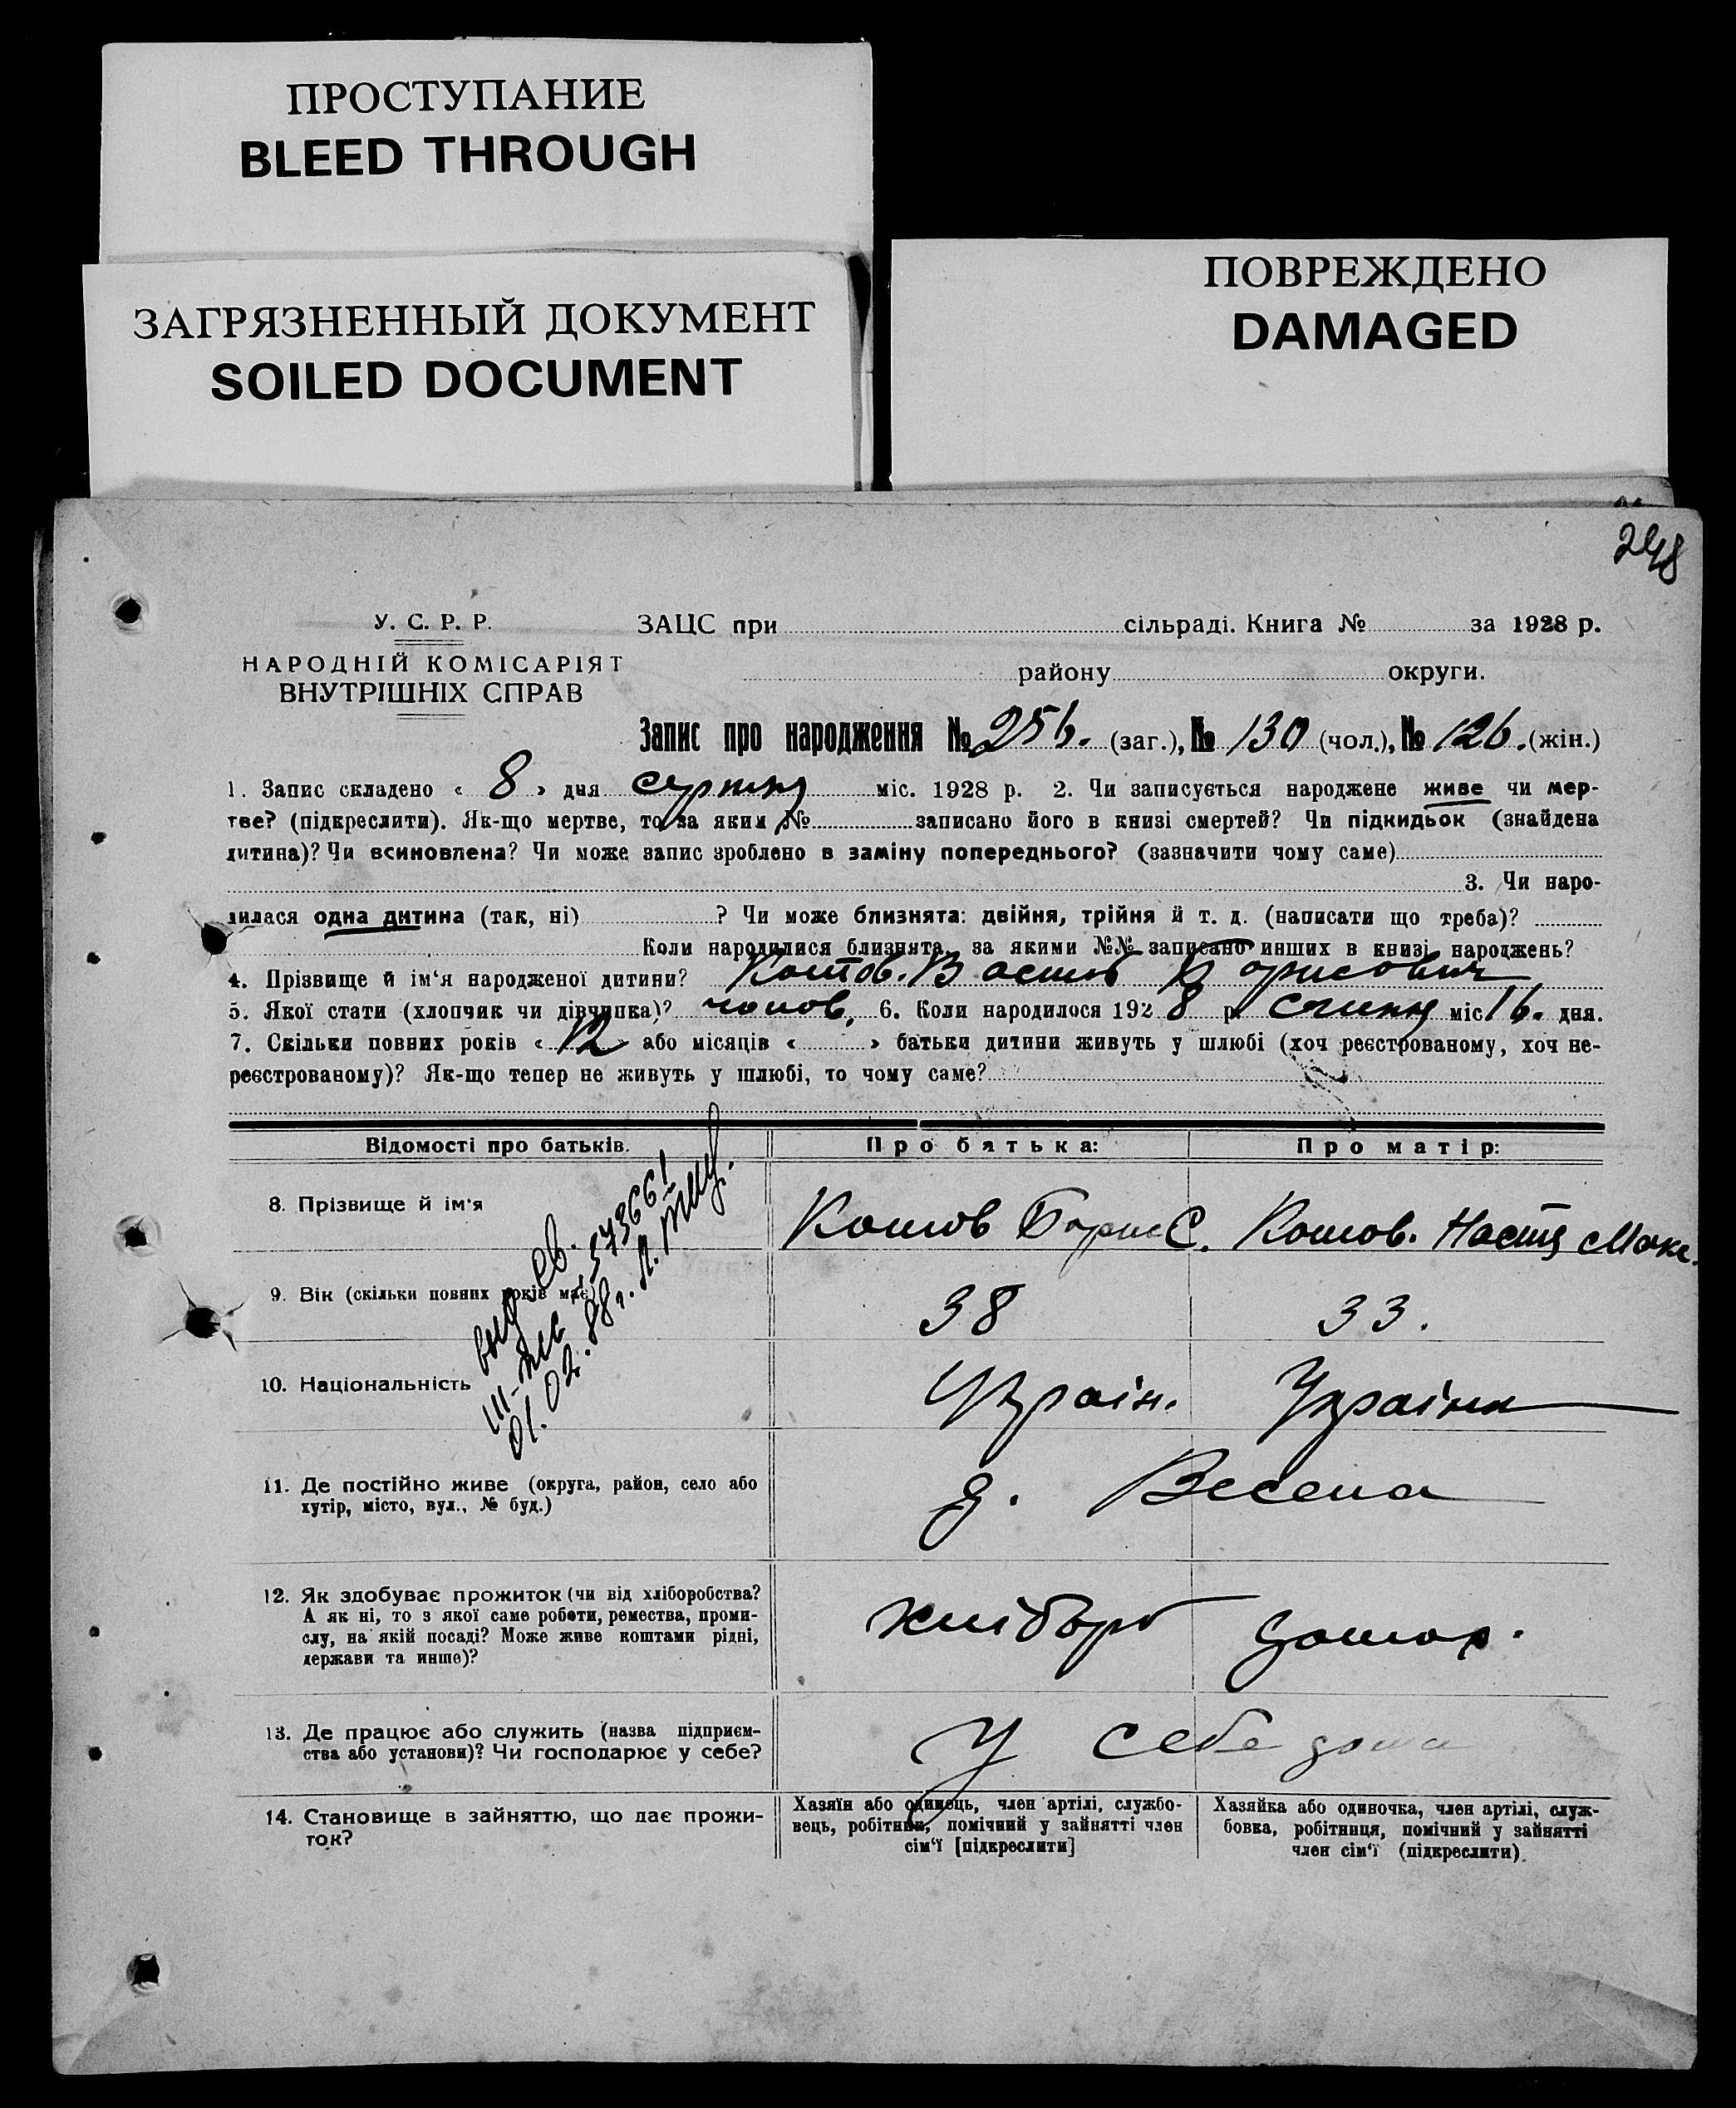 ПРОСТУПАНИЕ
BLEED THROUGH
ЗАГРЯЗНЕННЫЙ ДОКУМЕНТ
SOILED DOCUMENT
ПОВРЕЖДЕНО
DAMAGED
248
У. С. Р. Р.
НАРОДНІЙ КОМІСАРІЯТ
ВНУТРІШНІХ СПРАВ
ЗАЦС при сільраді. Книга № за 1928 р.
району округи.
Запис про народження № 256. (заг.), № 130 (чол.), № 126. (жін.)
1. Запис складено « 8 » дня серпня міс. 1928 р. 2. Чи записується народжене живе чи мер-
тве? (підкреслити). Як-що мертве, то за яким № записано його в книзі смертей? Чи підкидьок (знайдена
дитина)? Чи всиновлена? Чи може запис зроблено в заміну попереднього? (зазначити чому саме)
3. Чи наро-
дилася одна дитина (так, ні) ? Чи може близнята: двійня, трійня й т. д. (написати що треба)?
Коли народилися близнята, за якими №№ записано инших в книзі народжень?
4. Прізвище й ім‘я народженої дитини? Котов. Борисович
5. Якої статі (хлопчик чи дівчинка)? чолов. 6. Коли народилося 192 8 р. міс 16. дня.
7. Скільки повних років « 12 » або місяців « » батьки дитини живуть у шлюбі (хоч реєстрованому, хоч не-
реєстрованому)? Як-що тепер не живуть у шлюбі, то чому саме?
Відомості про батьків. Про батька: Про матір:
8. Прізвище й ім‘я Котов Борис С. Котов. Настя Макс.
9. Вік (скільки повних років має) 38 33.
10. Національність Україн. Українка
выд. св.
573661
01.02.88г.
11. Де постійно живе (округа, район, село або
хутір, місто, вул., № буд.)
д. Весела
12. Як здобуває прожиток (чи від хліборобства?
А як ні, то з якої саме роботи, ремества, проми-
слу, на якій посаді? Може живе коштами рідні,
держави та инше)?
хлібороб домох.
13. Де працює або служить (назва підприєм-
ства або установи)? Чи господарює у себе?
У себе дома
14. Становище в зайняттю, що дає прожи-
ток?
Хазяїн або одинець, член артілі, службо-
вець, робітник, помічний у зайнятті член
сім‘ї [підкреслити]
Хазяйка або одиночка, член артілі, служ-
бовка, робітниця, помічний у зайнятті
член сім‘ї (підкреслити).